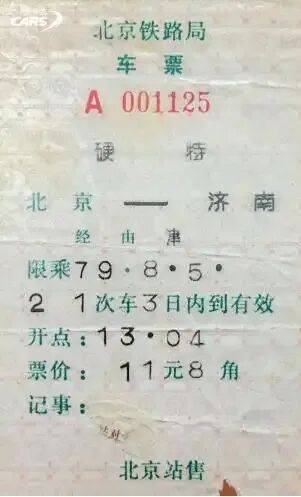 CARS
北京铁路局
车票
A 001125
硬 特
北京 — 济南
经由津
限乘79·8·5·
21次车3日内到有效
开点:13·04
票价: 11元8角
记事:
北京站售